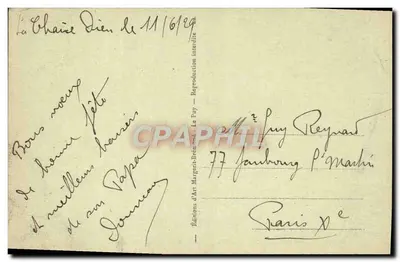 La Chaise Dieu le 11/6/29
Bons vœux
de bonne fête
et meilleurs baisers
de son Papa
Editions d'Art Margerit-Brémond - Le Puy - Reproduction interdite
CPA-PHILA
Mr Guy Reynard
77 Faubourg St Martin
Paris Xe